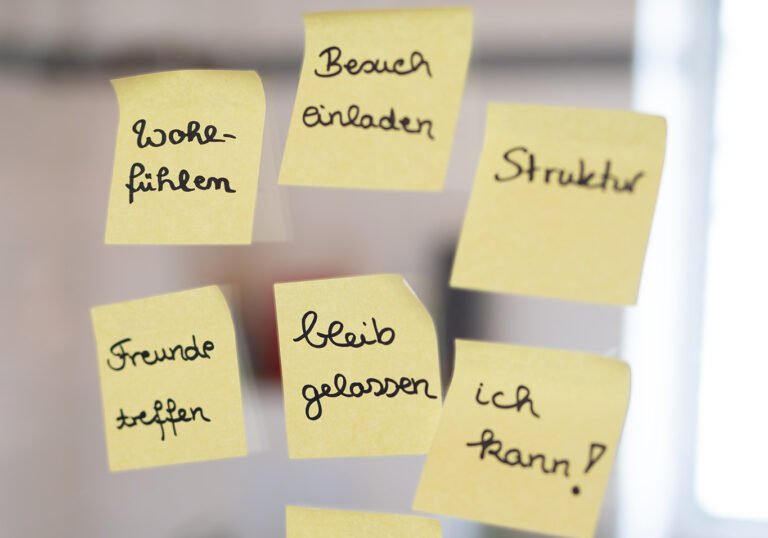 Wohl-
fühlen
Besuch
einladen
Struktur
Freunde
treffen
bleib
gelassen
ich
kann!